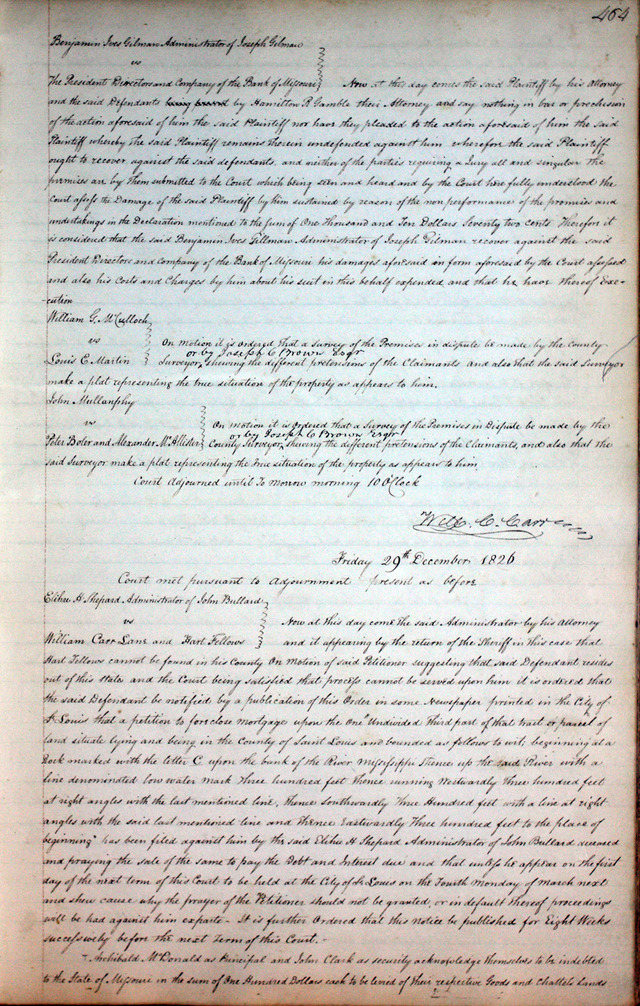 464
Benjamin Ives Gilman Administrator of Joseph Gilman
vs
The President Directors and Company of the Bank of Missouri Now at this day comes the said Plaintiff by his Attorney
and the said Defendants by Hamilton R Gamble their Attorney and say nothing in bar or preclusion
of the action aforesaid of him the said Plaintiff nor have they pleaded to the action aforesaid of him the said
Plaintiff whereby the said Plaintiff remains therein undefended against him wherefore the said Plaintiff
ought to recover against the said defendants, and neither of the parties requiring a Jury all and singular the
premises are by them submitted to the Court which being seen and heard and by the Court here fully understood the
Court assess the Damage of the said Plaintiff by him sustained by reason of the nonperformance of the promises and
undertakings in the Declaration mentioned to the sum of One Thousand and Ten Dollars Seventy two cents. Therefore it
is considered that the said Benjamin Ives Gillman Administrator of Joseph Gilman recover against the said
President Directors and Company of the Bank of Missouri his damages aforesaid in form aforesaid by the Court assessed
and also his Costs and Charges by him about his suit in this behalf expended and that he have thereof Exe-
-cution
William G. McCulloch
vs On motion it is ordered that a survey of the Premises in dispute be made by the County
or by Joseph C Brown Esqr
Louis E Martin Surveyor, shewing the different pretensions of the Claimants and also that the said Surveyor
make a plat representing the true situation of the property as appears to him.
John Mullanphy
vs On motion it is ordered that a Survey of the Premises in Dispute be made by the
or by Joseph C Brown Esqr
Peter Boler and Alexander McAllister County Surveyor, shewing the different pretensions of the Claimants, and also that the
said Surveyor make a plat representing the true situation of the property as appear to him
Court Adjourned until To morrow morning 10 OClock
Will. C. Carr
Friday 29th December 1826
Court met pursuant to Adjournment present as before
Elihu H Shepard Administrator of John Bullard
vs Now at this day come the said Administrator by his Attorney
William Carr Lane and Hart Fellows and it appearing by the return of the Sheriff in this case that
Hart Fellows cannot be found in his County On motion of said Petitioner suggesting that said Defendant resides
out of this state and the Court being satisfied that process cannot be served upon him it is ordered that
the said Defendant be notified by a publication of this Order in some Newspaper printed in the City of
St Louis that a petition to foreclose mortgage upon the One Undivided Third part of that tract or parcel of
land situate lying and being in the County of Saint Louis and bounded as follows to wit; beginning at a
Rock marked with the letter C upon the bank of the River Mississippi thence up the said River with a
line denominated low water mark Three hundred feet thence running Westwardly Three hundred feet
at right angles with the last mentioned line, thence Southwardly Three Hundred feet with a line at right
angles with the said last mentioned line and thence Eastwardly Three hundred feet to the place of
beginning" has been filed against him by the said Elihu H Shepard Administrator of John Bullard deceased
and praying the sale of the same to pay the Debt and Interest due and that unless he appear on the first
day of the next term of this Court to be held at the City of St Louis on the Fourth Monday of March next
and shew cause why the prayer of the Petitioner should not be granted, or in default thereof proceedings
will be had against him exparte - It is further Ordered that this notice be published for Eight Weeks
successively before the next term of this Court. -
Archibald McDonald as Principal and John Clark as security acknowledge themselves to be indebted
to the State of Missouri in the sum of One Hundred Dollars each to be levied of their respective Goods and Chattels Lands